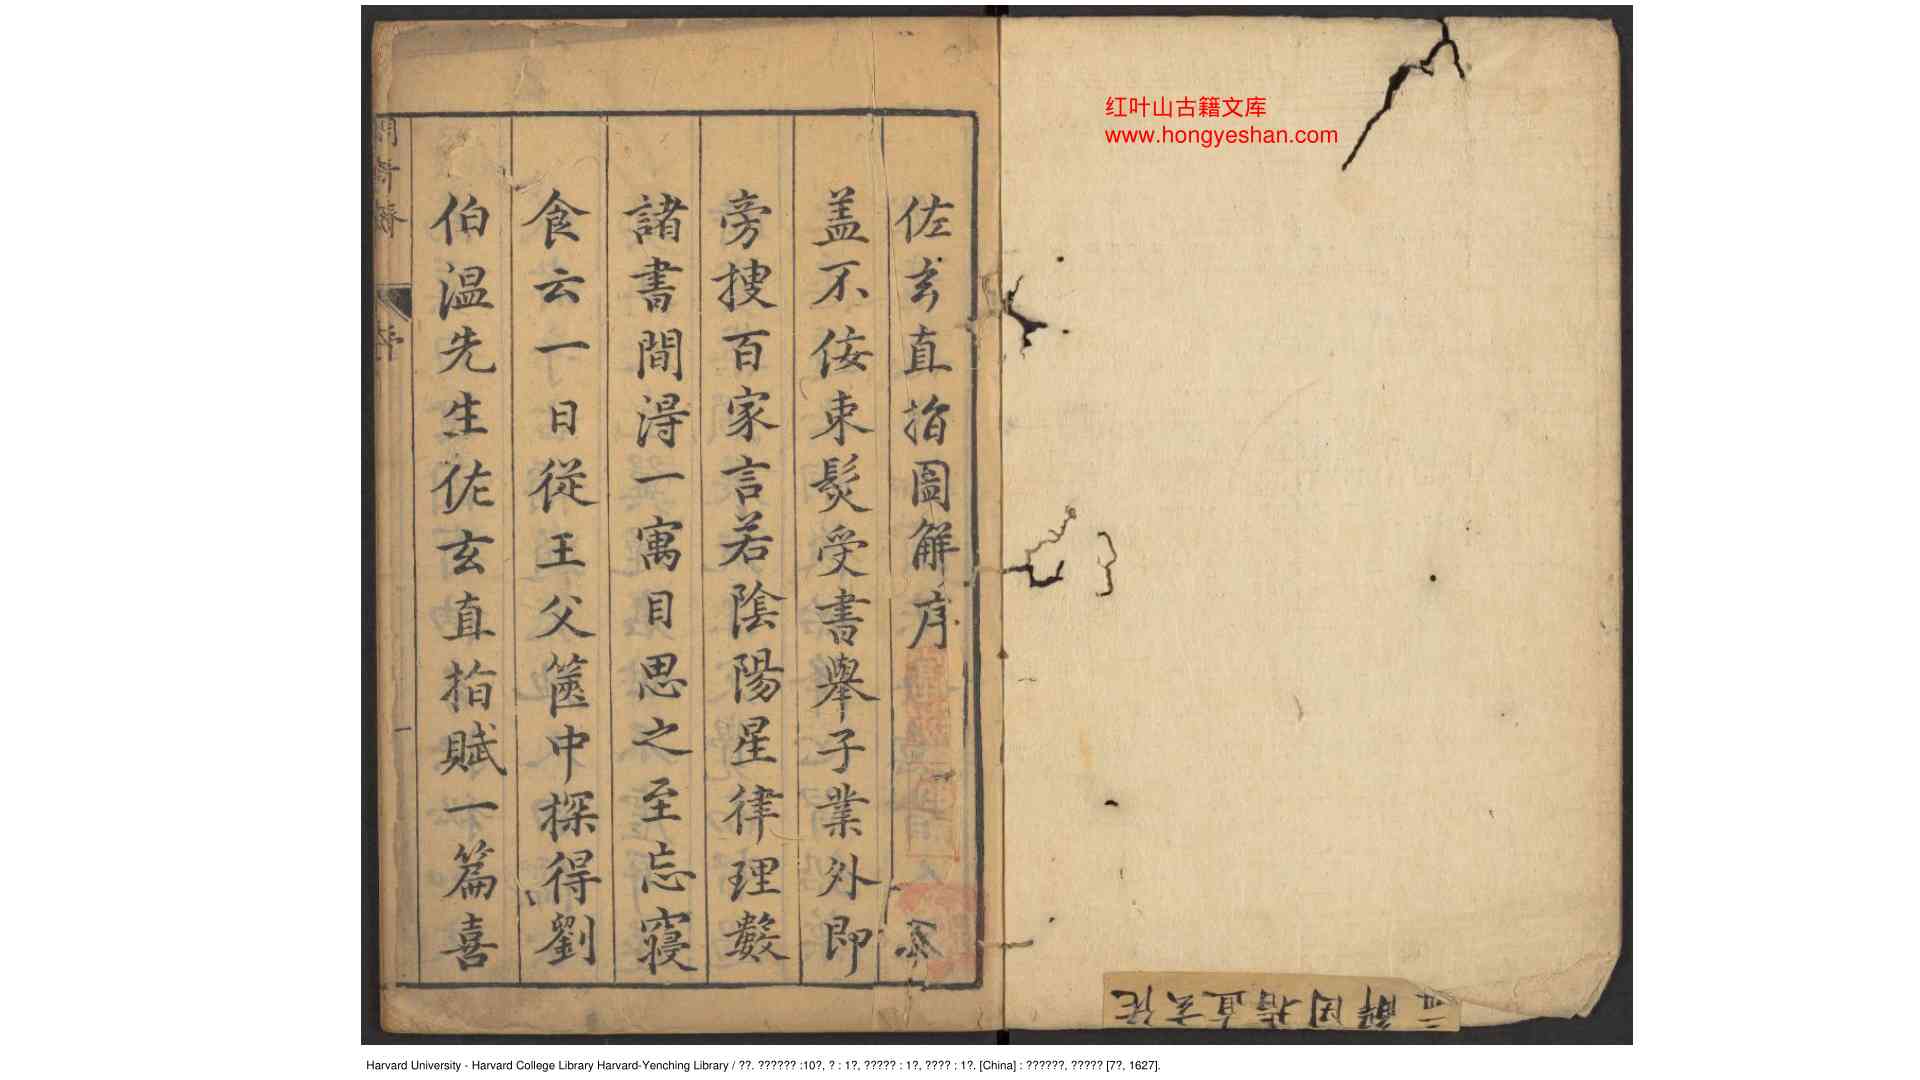 佐玄直指圖解序
盖不佞束髮受書舉子業外即
旁搜百家言若陰陽星律理數
諸書間淂一寓目思之至忘寢
食云一日從王父篋中探得劉
伯温先生佐玄直指賦一篇喜
序
一
红叶山古籍文库
www.hongyeshan.com
佐玄直指図解
Harvard University - Harvard College Library Harvard-Yenching Library / ??. ?????? :10?, ? : 1?, ????? : 1?, ???? : 1?. [China] : ??????, ????? [7?, 1627].